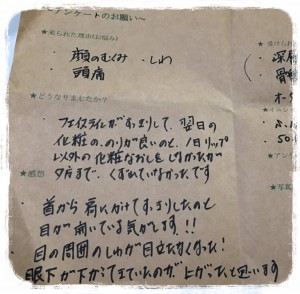 アンケートのお願い〜
★来られた理由(お悩み)
・顔のむくみ・しわ
・頭痛
★どうなりましたか?
フェイスラインがすっきりして、翌日の
化粧ののりが良いのと、1日リップ
以外の化粧なおしをしなかったが
夕方まで、くずれていなかったです
★感想
首から肩にかけてすっきりしたのと
目が開いている気がします!!
目の周囲のしわが目立たなくなった!
眼下が下がってきていたのが上がったと思います
★受けられ
・深層
・骨
★イベン
50.
★写真